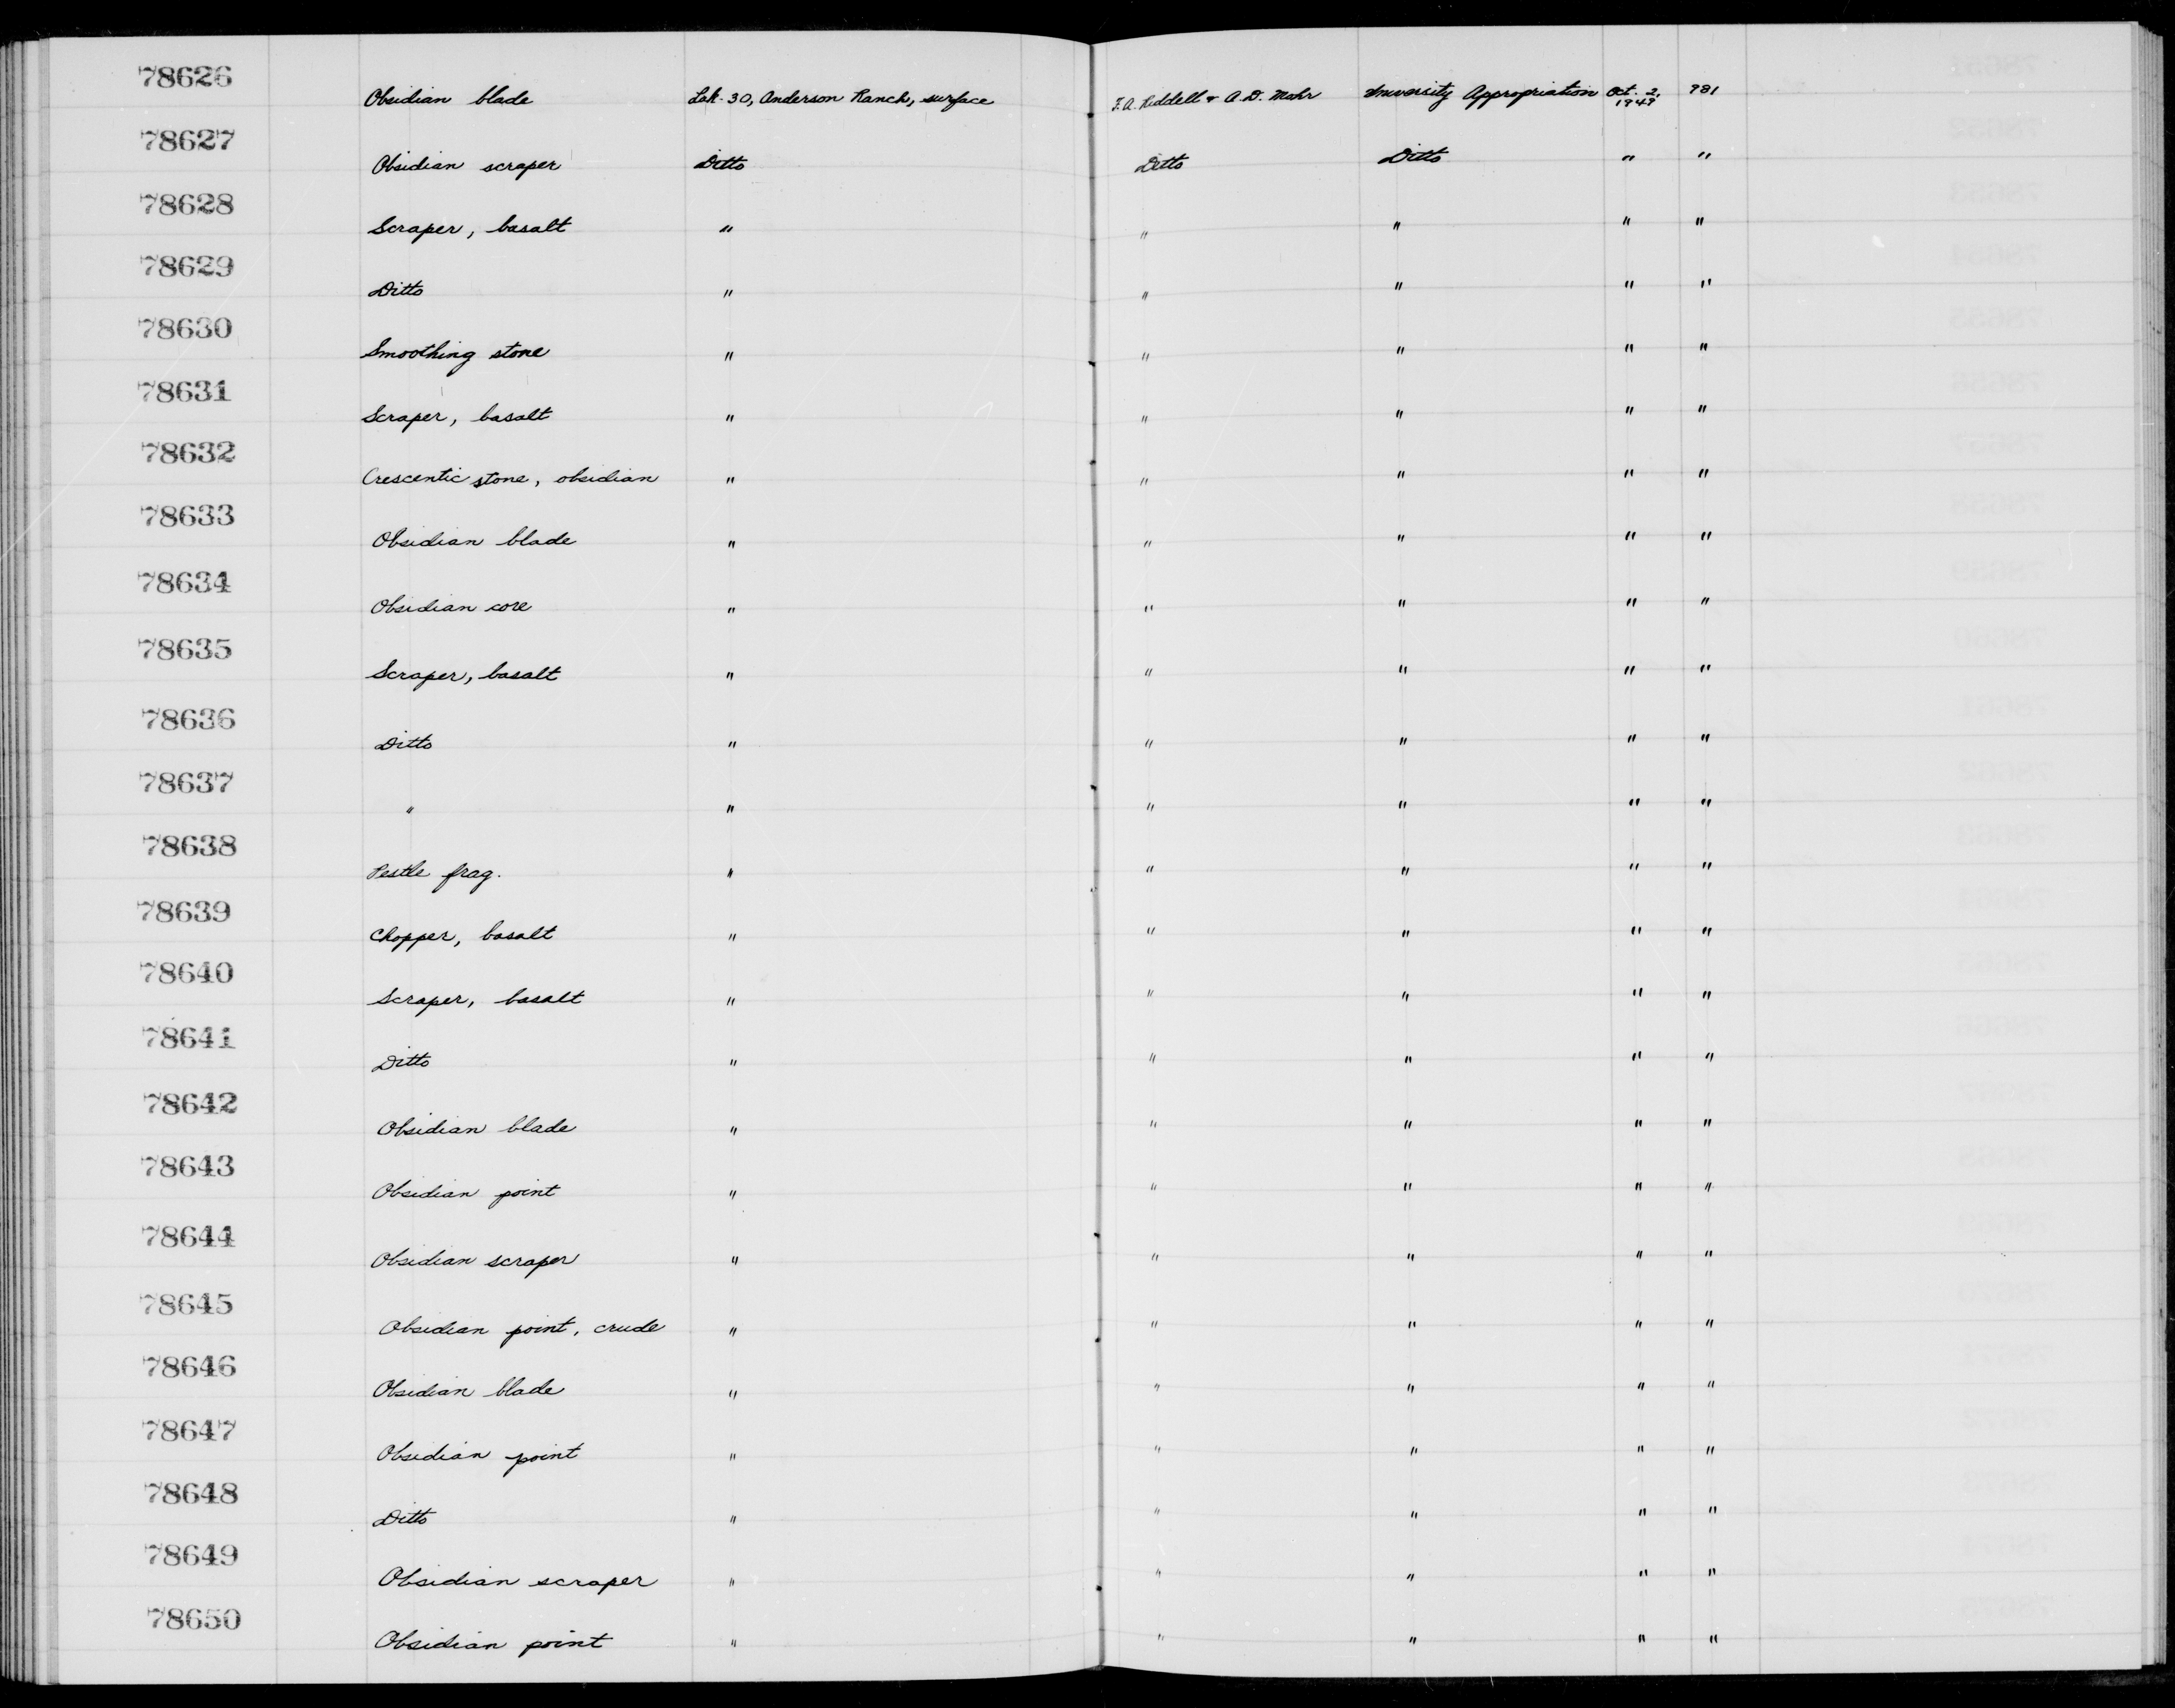 78626 Obsidian blade Lak-30, Anderson Ranch, surface F. A. Riddell & A. D. Mohr University Appropriation Oct. 2, 1949 981
78627 Obsidian scraper Ditto Ditto Ditto " "
78628 Scraper, basalt " " " " "
78629 Ditto " " " " "
78630 Smoothing stone " " " " "
78631 Scraper, basalt " " " " "
78632 Crescentic stone, obsidian " " " " "
78633 Obsidian blade " " " " "
78634 Obsidian core " " " " "
78635 Scraper, basalt " " " " "
78636 Ditto " " " " "
78637 " " " " " "
78638 Pestle frag. " " " " "
78639 Chopper, basalt " " " " "
78640 Scraper, basalt " " " " "
78641 Ditto " " " " "
78642 Obsidian blade " " " " "
78643 Obsidian point " " " " "
78644 Obsidian scraper " " " " "
78645 Obsidian point, crude " " " " "
78646 Obsidian blade " " " " "
78647 Obsidian point " " " " "
78648 Ditto " " " " "
78649 Obsidian scraper " " " " "
78650 Obsidian point " " " " "